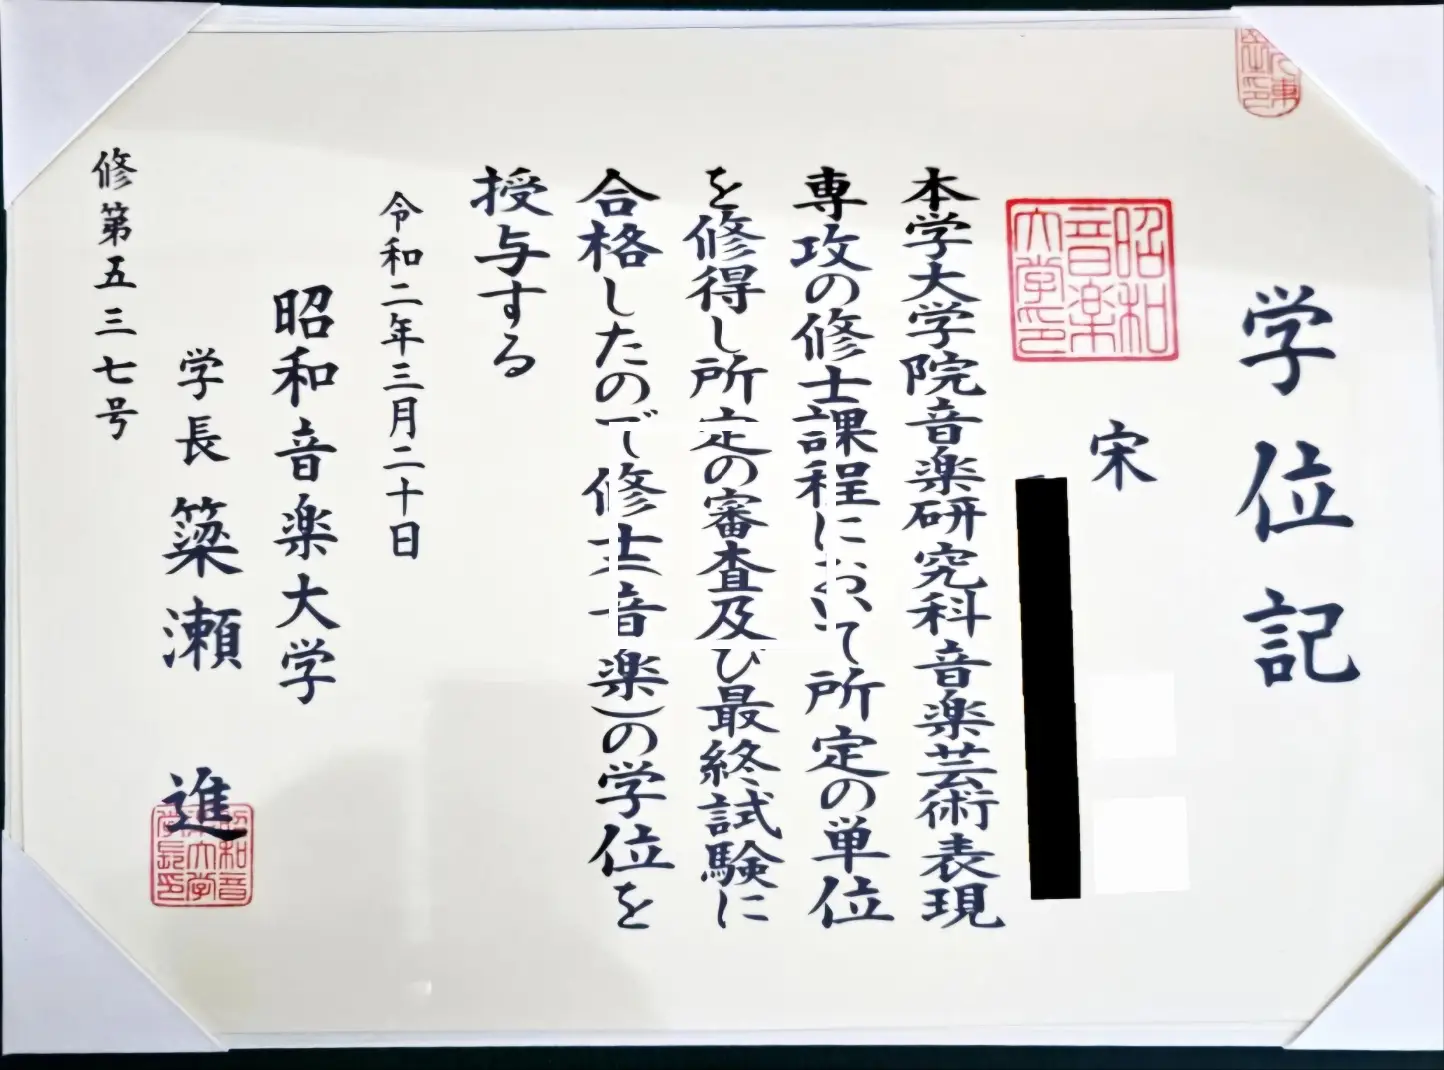 学位記
宋
昭和
音楽
大学印
本学大学院音楽研究科音楽芸術表現
専攻の修士課程において所定の単位
を修得し所定の審査及び最終試験に
合格したので修士(音楽)の学位を
授与する
令和二年三月二十日
昭和音楽大学
学長 簗瀬 進
昭和音
楽大学
学長印
修第五三七号